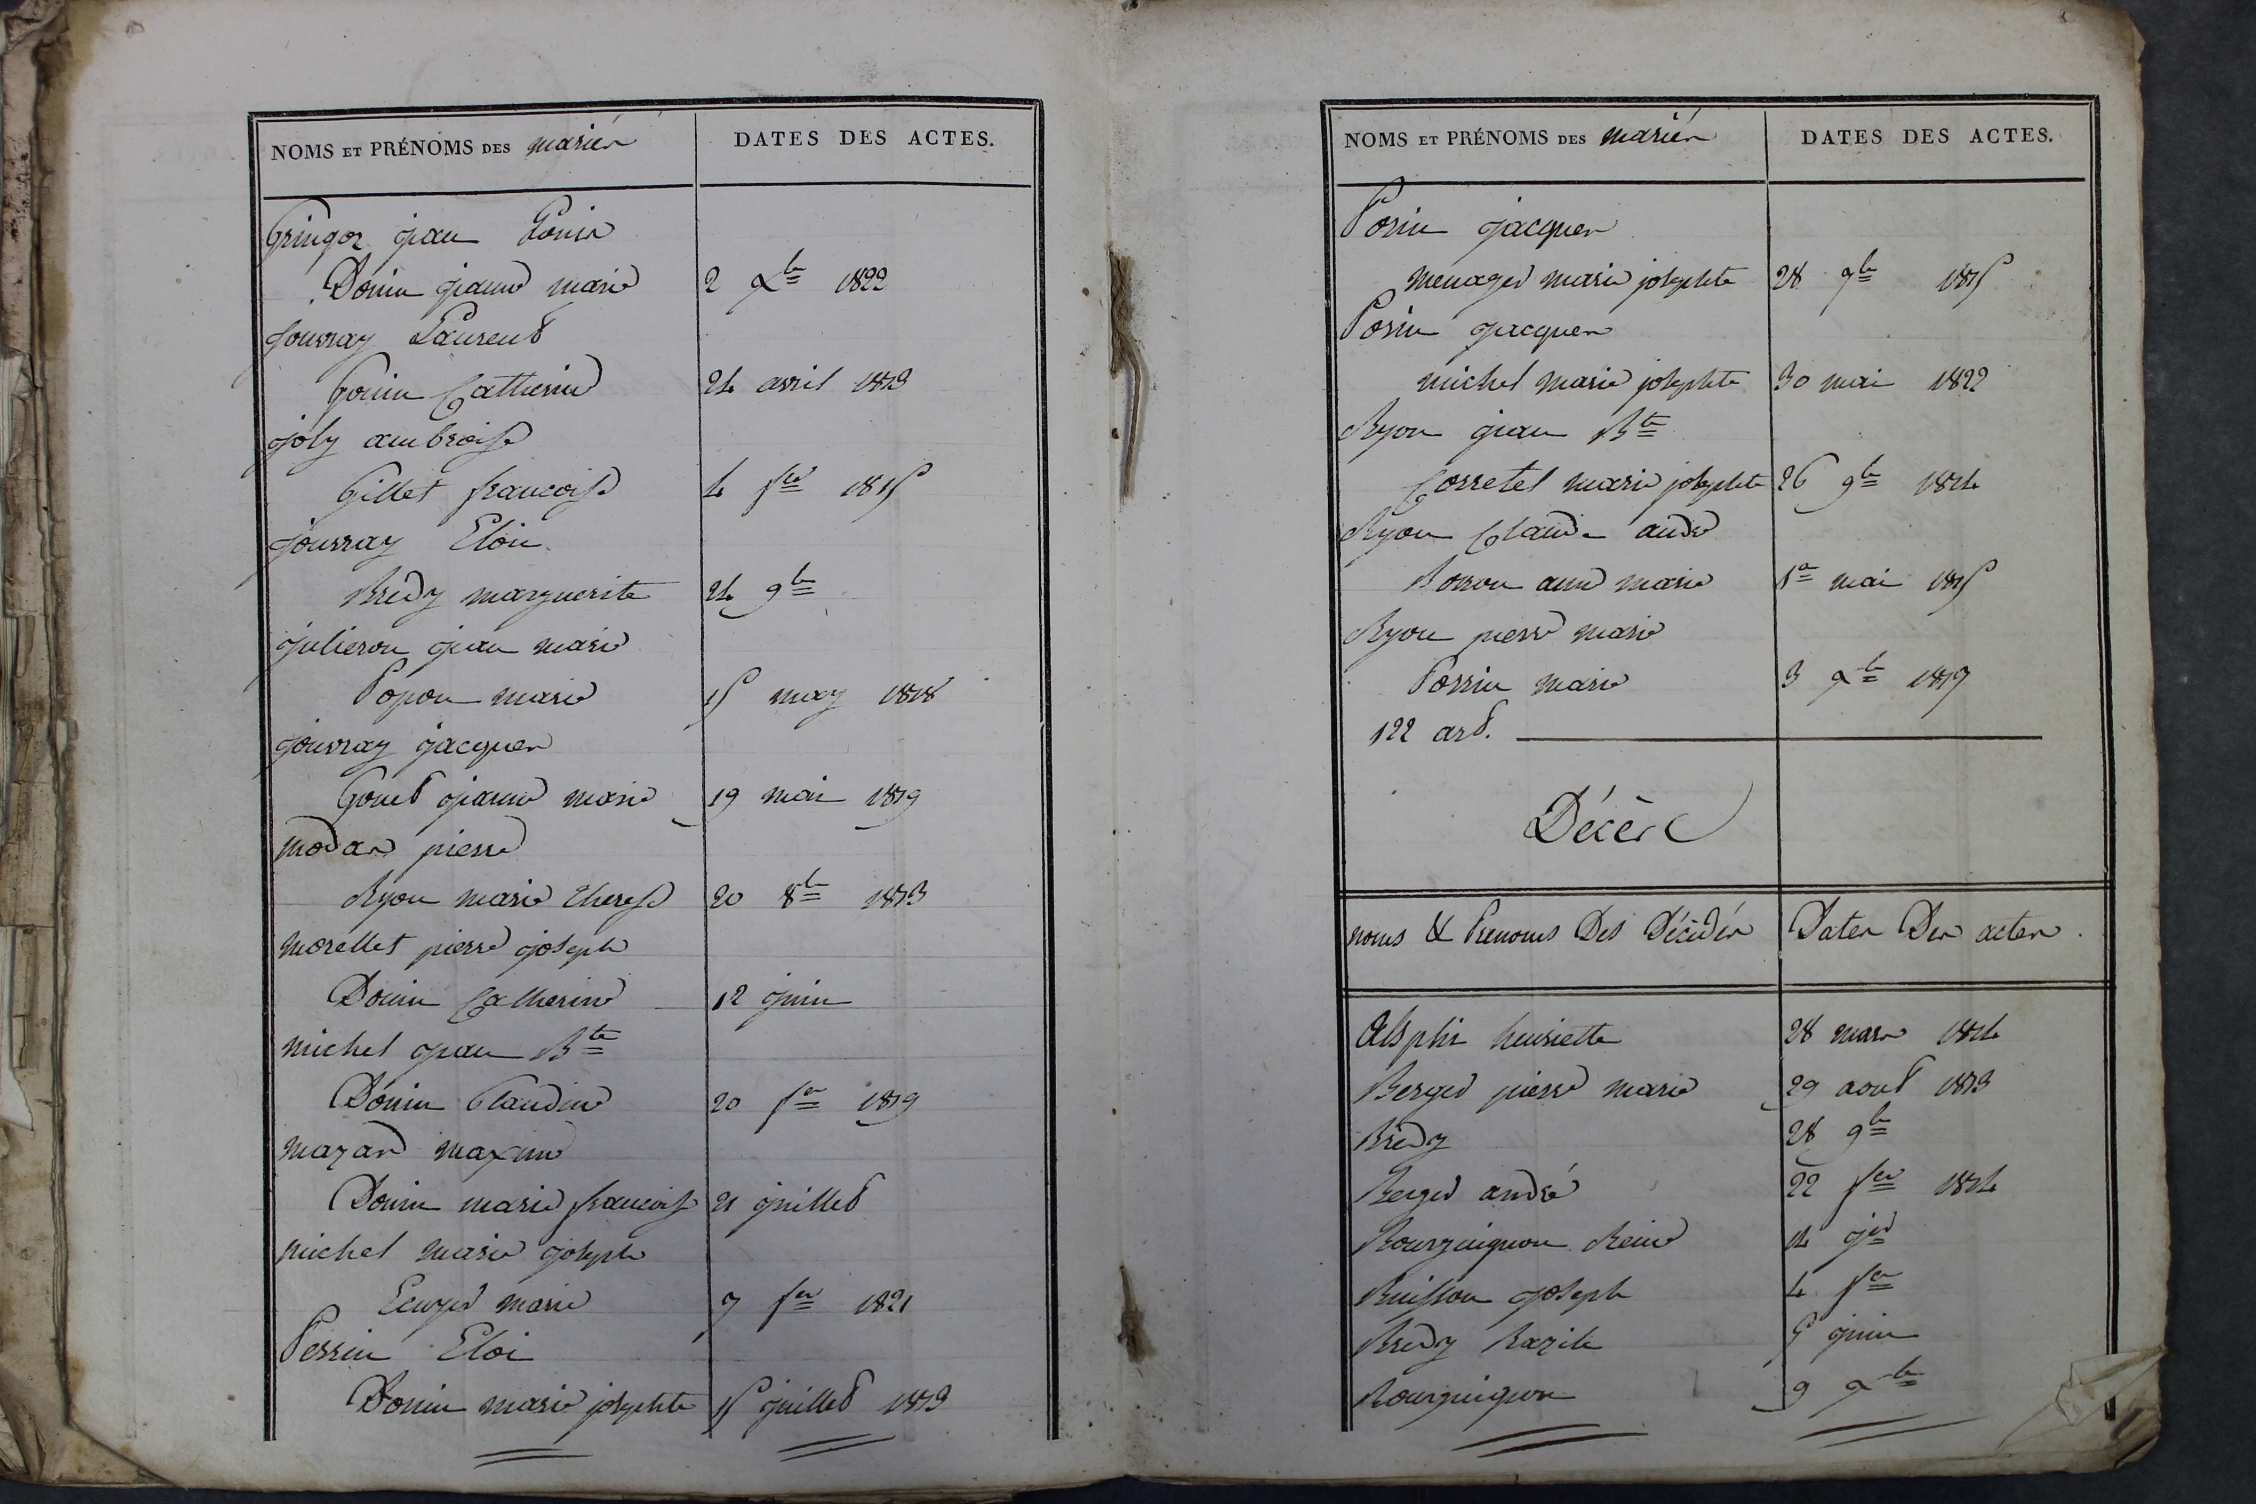 NOMS ET PRÉNOMS DES mariés
DATES DES ACTES.
Gringoz jean Louis
Donin jeanne marie 2 Xbre 1822
jouvray Laurent
Gonin Catherine 24 avril 1813
joly ambroise
Gillet francoise 4 fer 1815
jouvray Eloi
Bredy marguerite 24 9bre
julieron jean marie
Popon marie 15 may 1818
jouvray jacques
Gout jeanne marie 19 mai 1819
modas pierre
Ryon marie therese 20 8bre 1813
morellet pierre joseph
Donin Catherine 12 juin
michel jean Bte
Donin Claudine 20 fer 1819
mazard maxime
Donin marie francoise 21 juillet
michel marie joseph
Ecuyer marie 7 fer 1821
Perrin Eloi
Donin marie josephte 15 juillet 1813
NOMS ET PRÉNOMS DES mariés
DATES DES ACTES.
Porin jacques
menager marie josephte 28 9bre 1815
Porin jacques
michel marie josephte 30 mai 1822
Ryon jean Bte
Corretel marie josephte 26 9bre 1814
Ryon Claude andré
anne marie 1er mai 1815
Ryon pierre marie
Porrin marie 3 Xbre 1817
122 art.
Décès
noms & Prenoms Des Décédés Dates Des actes.
henriette 28 mars 1814
Berger pierre marie 29 aout 1813
Bredy 28 9bre
Berger andré 22 fer 1814
Bourguignon Reine 14 jer
Buisson joseph 4 fer
Bredy Bazile 5 juin
Bourguignon 9 Xbre